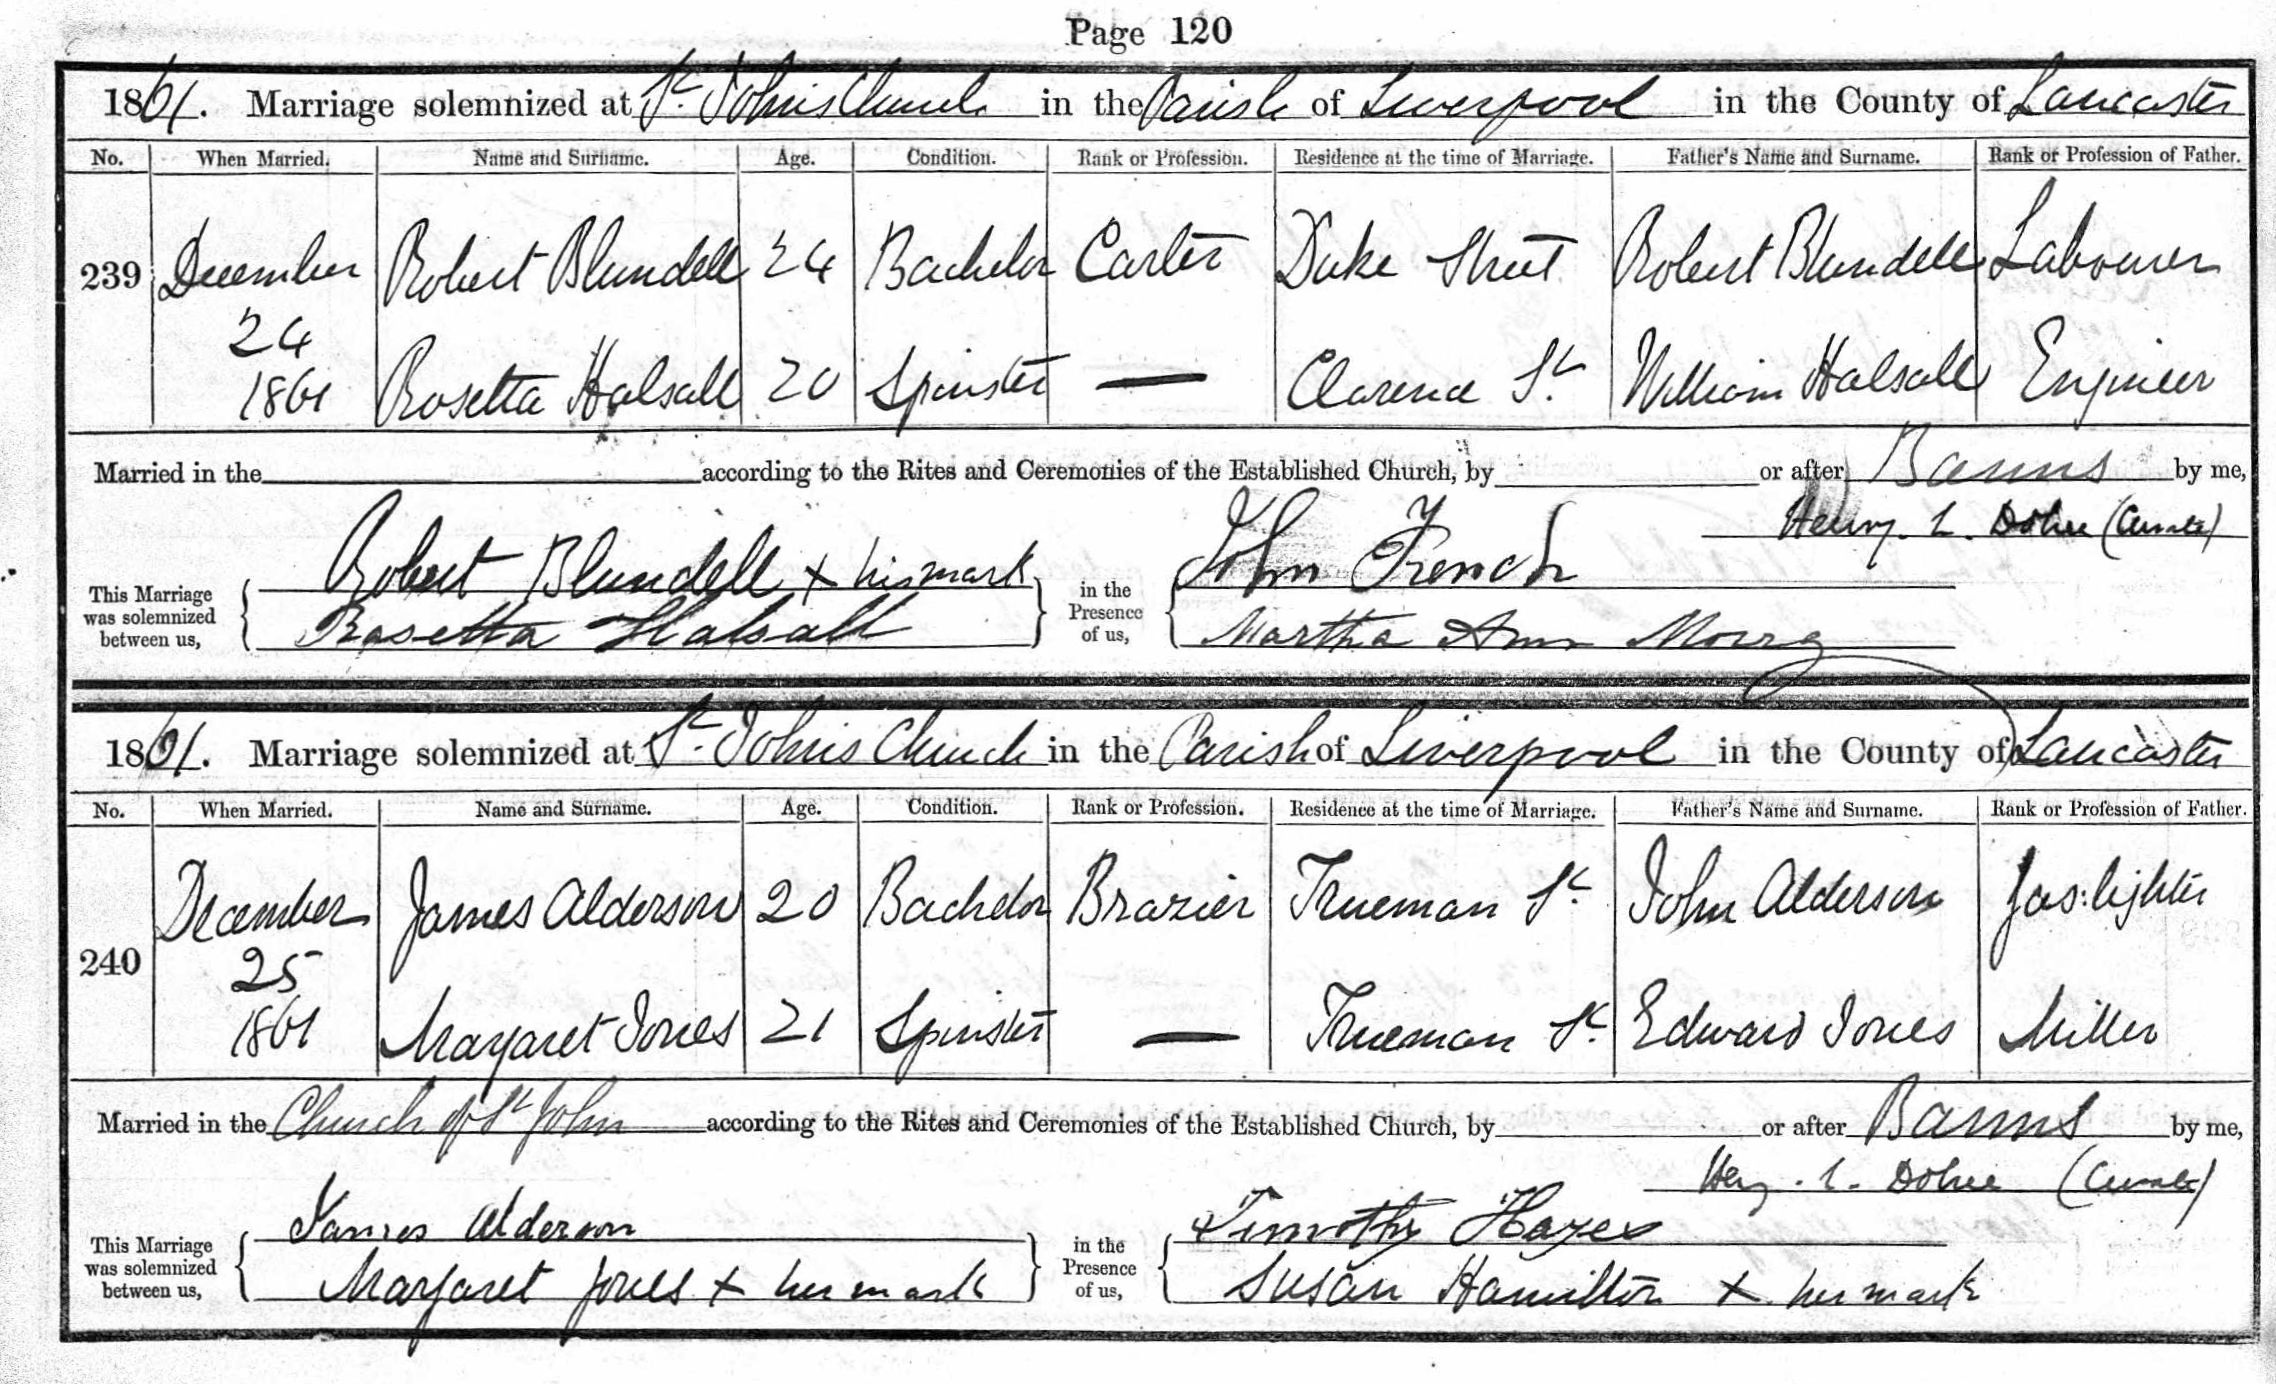 Page 120
1861. Marriage solemnized at St. John's Church in the Parish of Liverpool in the County of Lancaster
No. When Married. Name and Surname. Age. Condition. Rank or Profession. Residence at the time of Marriage. Father's Name and Surname. Rank or Profession of Father.
239 December 24 1861 Robert Blundell 24 Bachelor Carter Duke Street Robert Blundell Labourer
Rosetta Halsall 20 Spinster — Clarence St. William Halsall Engineer
Married in the according to the Rites and Ceremonies of the Established Church, by or after Banns by me,
Henry. L. (Curate)
This Marriage was solemnized between us, Robert Blundell x his mark in the Presence of us, John French
Rosetta Halsall Martha Ann
1861. Marriage solemnized at St. John's Church in the Parish of Liverpool in the County of Lancaster
No. When Married. Name and Surname. Age. Condition. Rank or Profession. Residence at the time of Marriage. Father's Name and Surname. Rank or Profession of Father.
240 December 25 1861 James Alderson 20 Bachelor Brazier Trueman St. John Alderson Gas:lighter
Margaret Jones 21 Spinster — Trueman St. Edward Jones Miller
Married in the Church of St John according to the Rites and Ceremonies of the Established Church, by or after Banns by me,
Hen'y. L. (Curate)
This Marriage was solemnized between us, James Alderson in the Presence of us, Timothy Hayes
Margaret Jones x her mark Susan Hamilton x her mark